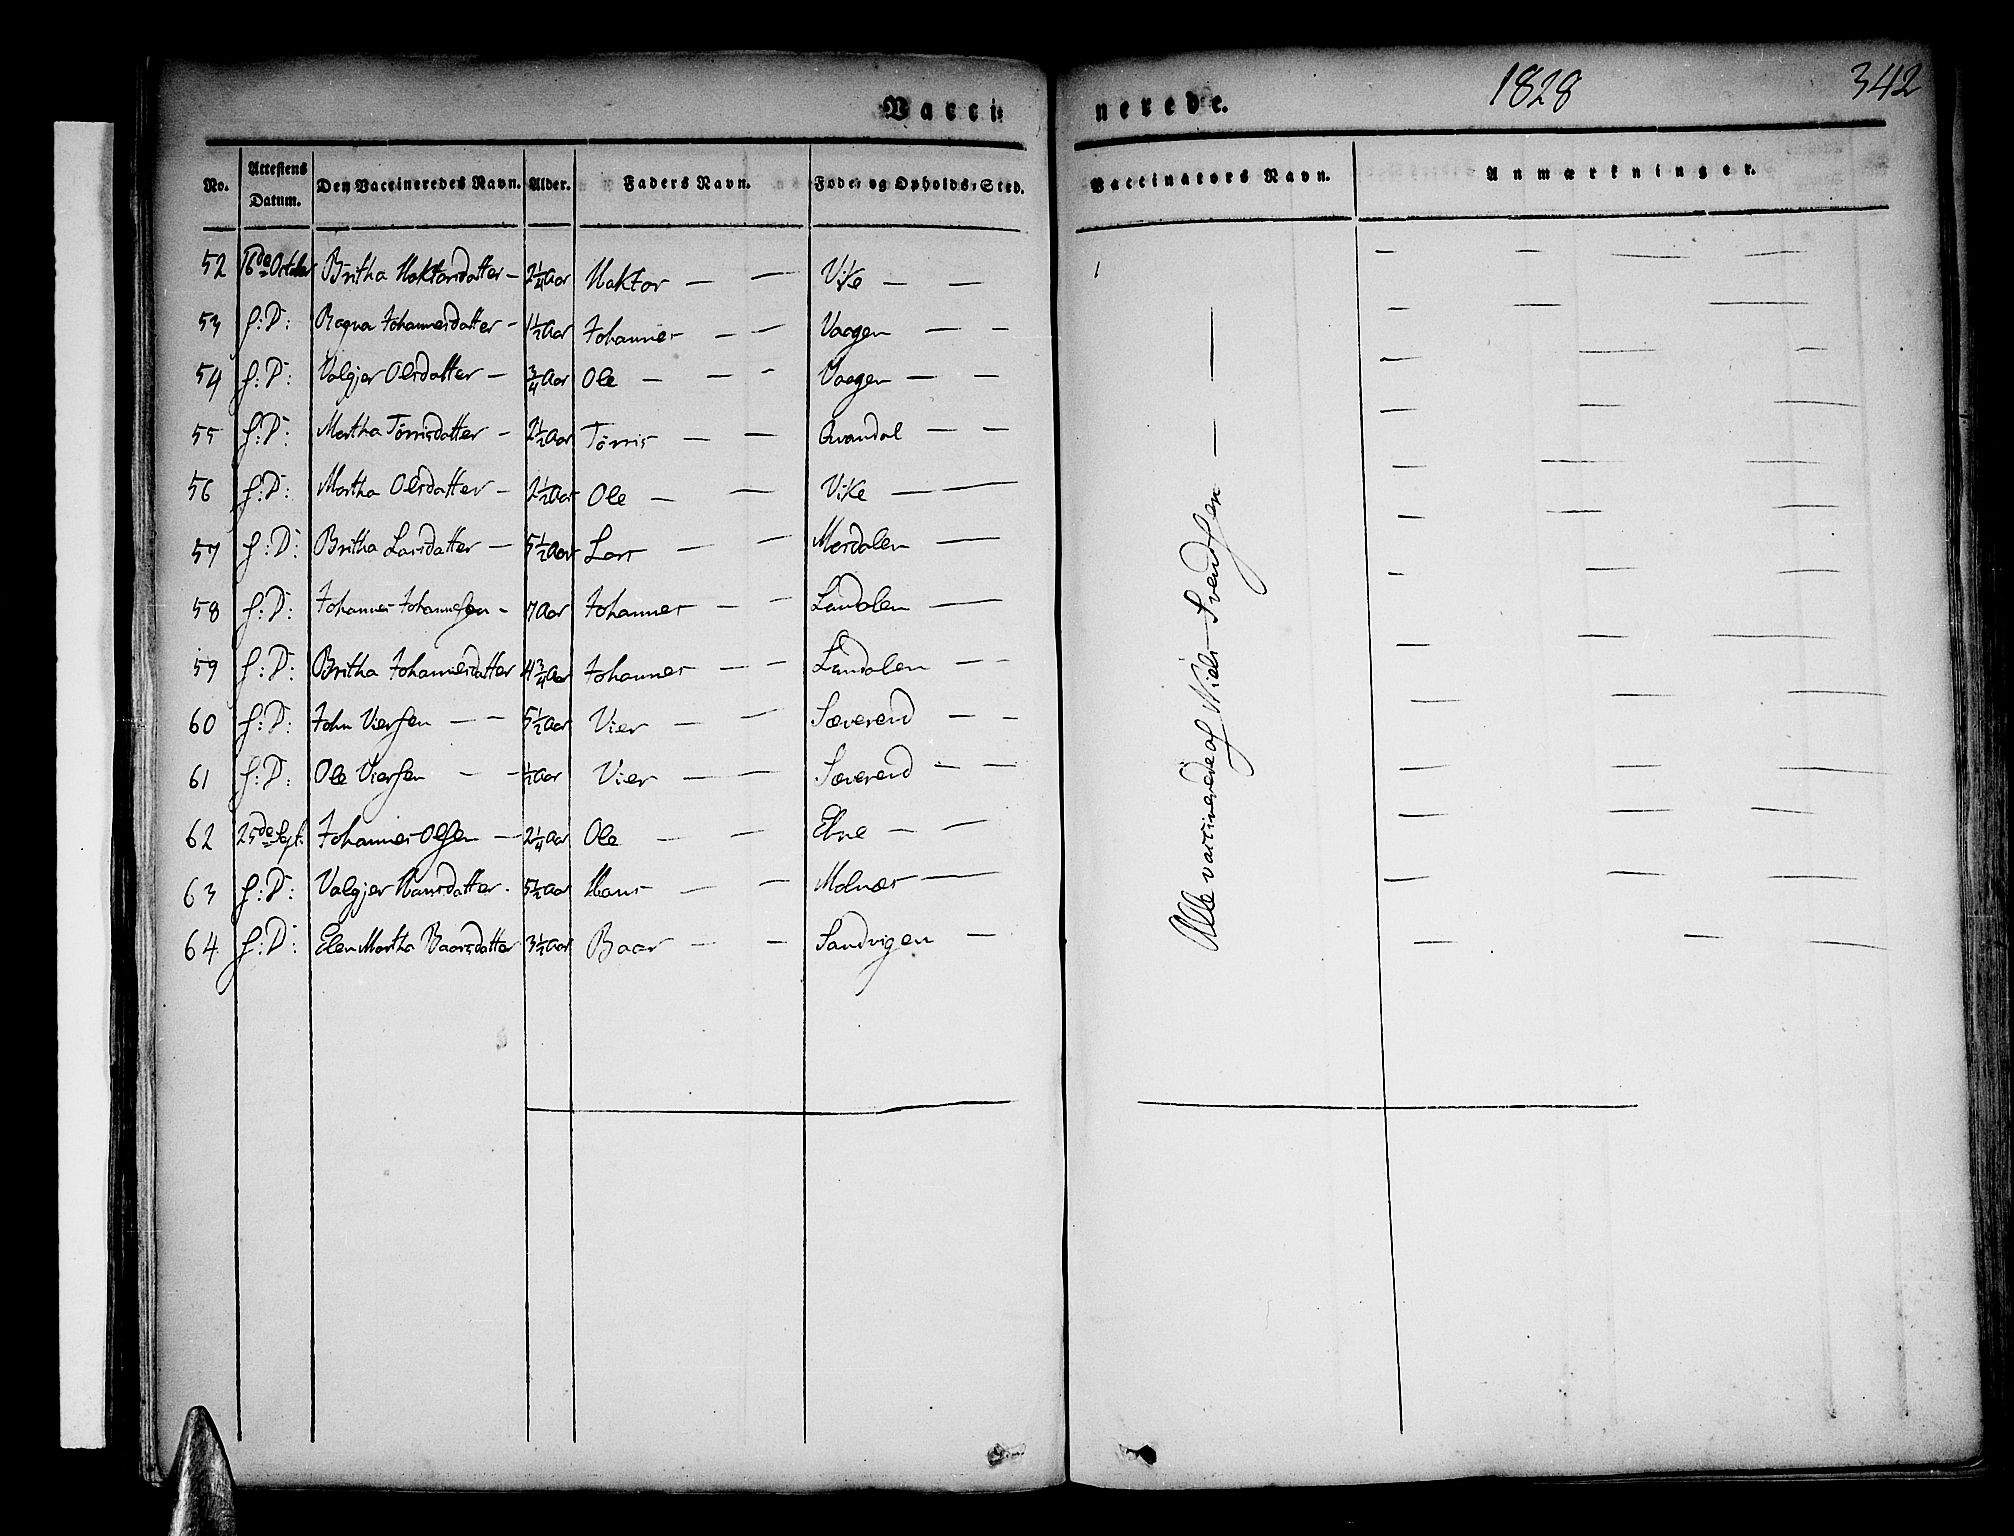 Vacci:
nerede.
1828
342
No. Attestens Datum. Den Vaccineredes Navn. Alder. Faders Navn. Føde- og Opholds-Sted. Vaccinators Navn. Anmærkninger.
52 16de October Britha Haktorsdatter – 2 1/4 Aar Haktor — — Vike — —
53 s: D: Ragna Johannesdatter – 1 1/2 Aar Johannes — — Vaagen — —
54 s: D: Valgjer Olsdatter — 3/4 Aar Ole — — – Vaagen — —
55 s: D: Martha Tørrisdatter – 2 1/2 Aar Tørris — — Qvandal — —
56 s: D: Martha Olsdatter – 2 1/2 Aar Ole — — Vike — —
57 s: D: Britha Larsdatter — 5 1/2 Aar Lars — — Mosdalen —
58 s: D: Johannes Johannessen – 7 Aar Johannes — — Landalen —
59 s: D: Britha Johannesdatter 4 3/4 Aar Johannes — — Landalen — —
60 s: D: John Viersen — — 5 1/2 Aar Vier — — Sæverend — —
61 s: D: Ole Viersen — — 1/2 Aar Vier — — Sæverend — —
62 25de Sept. Johannes Olsen — 2 1/4 Aar Ole — — Etne — —
63 s: D: Valgjer Hansdatter . 5 1/2 Aar Hans — — Molnæs —
64 s: D: Elen Martha Baarsdatter 3 1/2 Aar Baar — — Sandvigen —
Alle vaccinerede af Niels Svendsen — — —